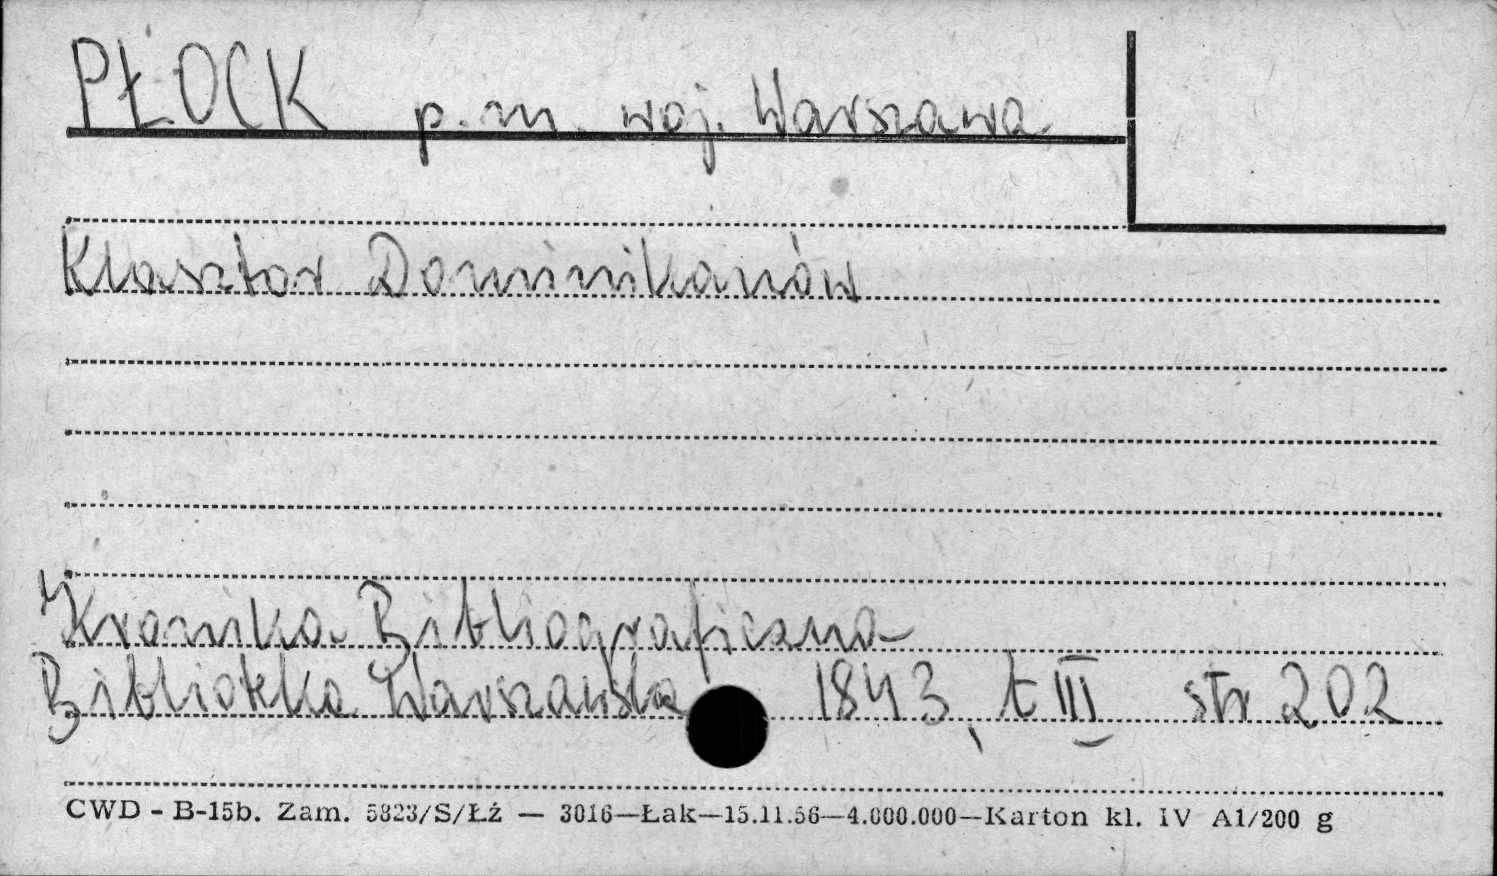 PŁOCK p.m. woj. Warszawa
Klasztor Dominikanów
Kronika Bibliograficzna
Biblioteka Warszawska 1843, t III str 202
CWD - B-15b. Zam. 5823/S/Łź — 3016—Łak—15.11.56—4.000.000—Karton kl. IV A1/200 g